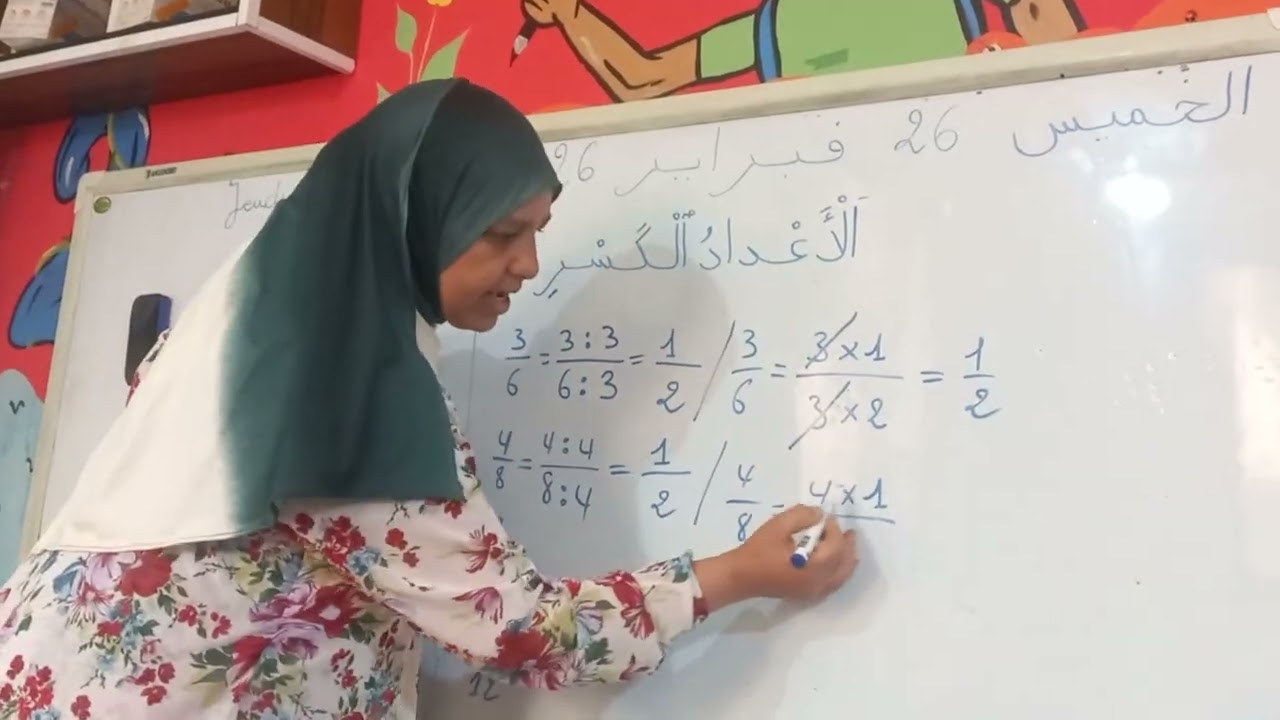 الخميس 26 فبراير 26
اَلْأَعْدادُ ٱلْكَسْرِ
3/6 = 3:3/6:3 = 1/2 / 3/6 = 3×1/3×2 = 1/2
4/8 = 4:4/8:4 = 1/2 / 4/8 = 4×1
12